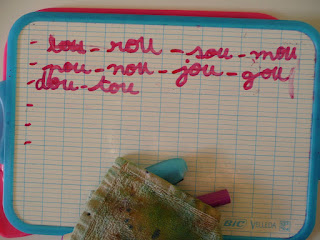 - lou - rou - sou - mou
- pou - nou - jou - gou
- dou - tou
-
-
-
BIC VELLEDA